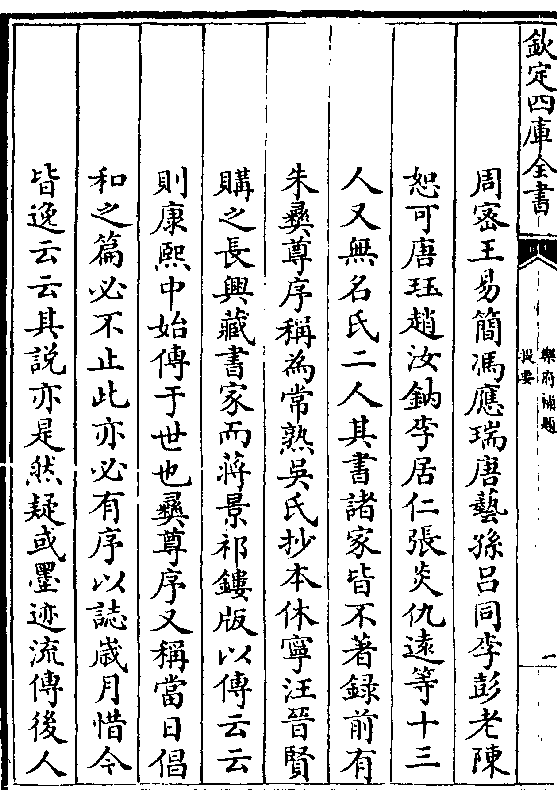 欽定四庫全書
樂府補題
提要
一
周密王易簡馮應瑞唐藝孫吕同李彭老陳
恕可唐珏趙汝鈉李居仁張炎仇遠等十三
人又無名氏二人其書諸家皆不著録前有
朱彞尊序稱為常熟吳氏抄本休寧汪晉賢
購之長興藏書家而蔣景祁鏤版以傳云云
則康熙中始傳于世也彞尊序又稱當日倡
和之篇必不止此亦必有序以誌歳月惜今
皆逸云云其說亦是然疑或墨迹流傳後人